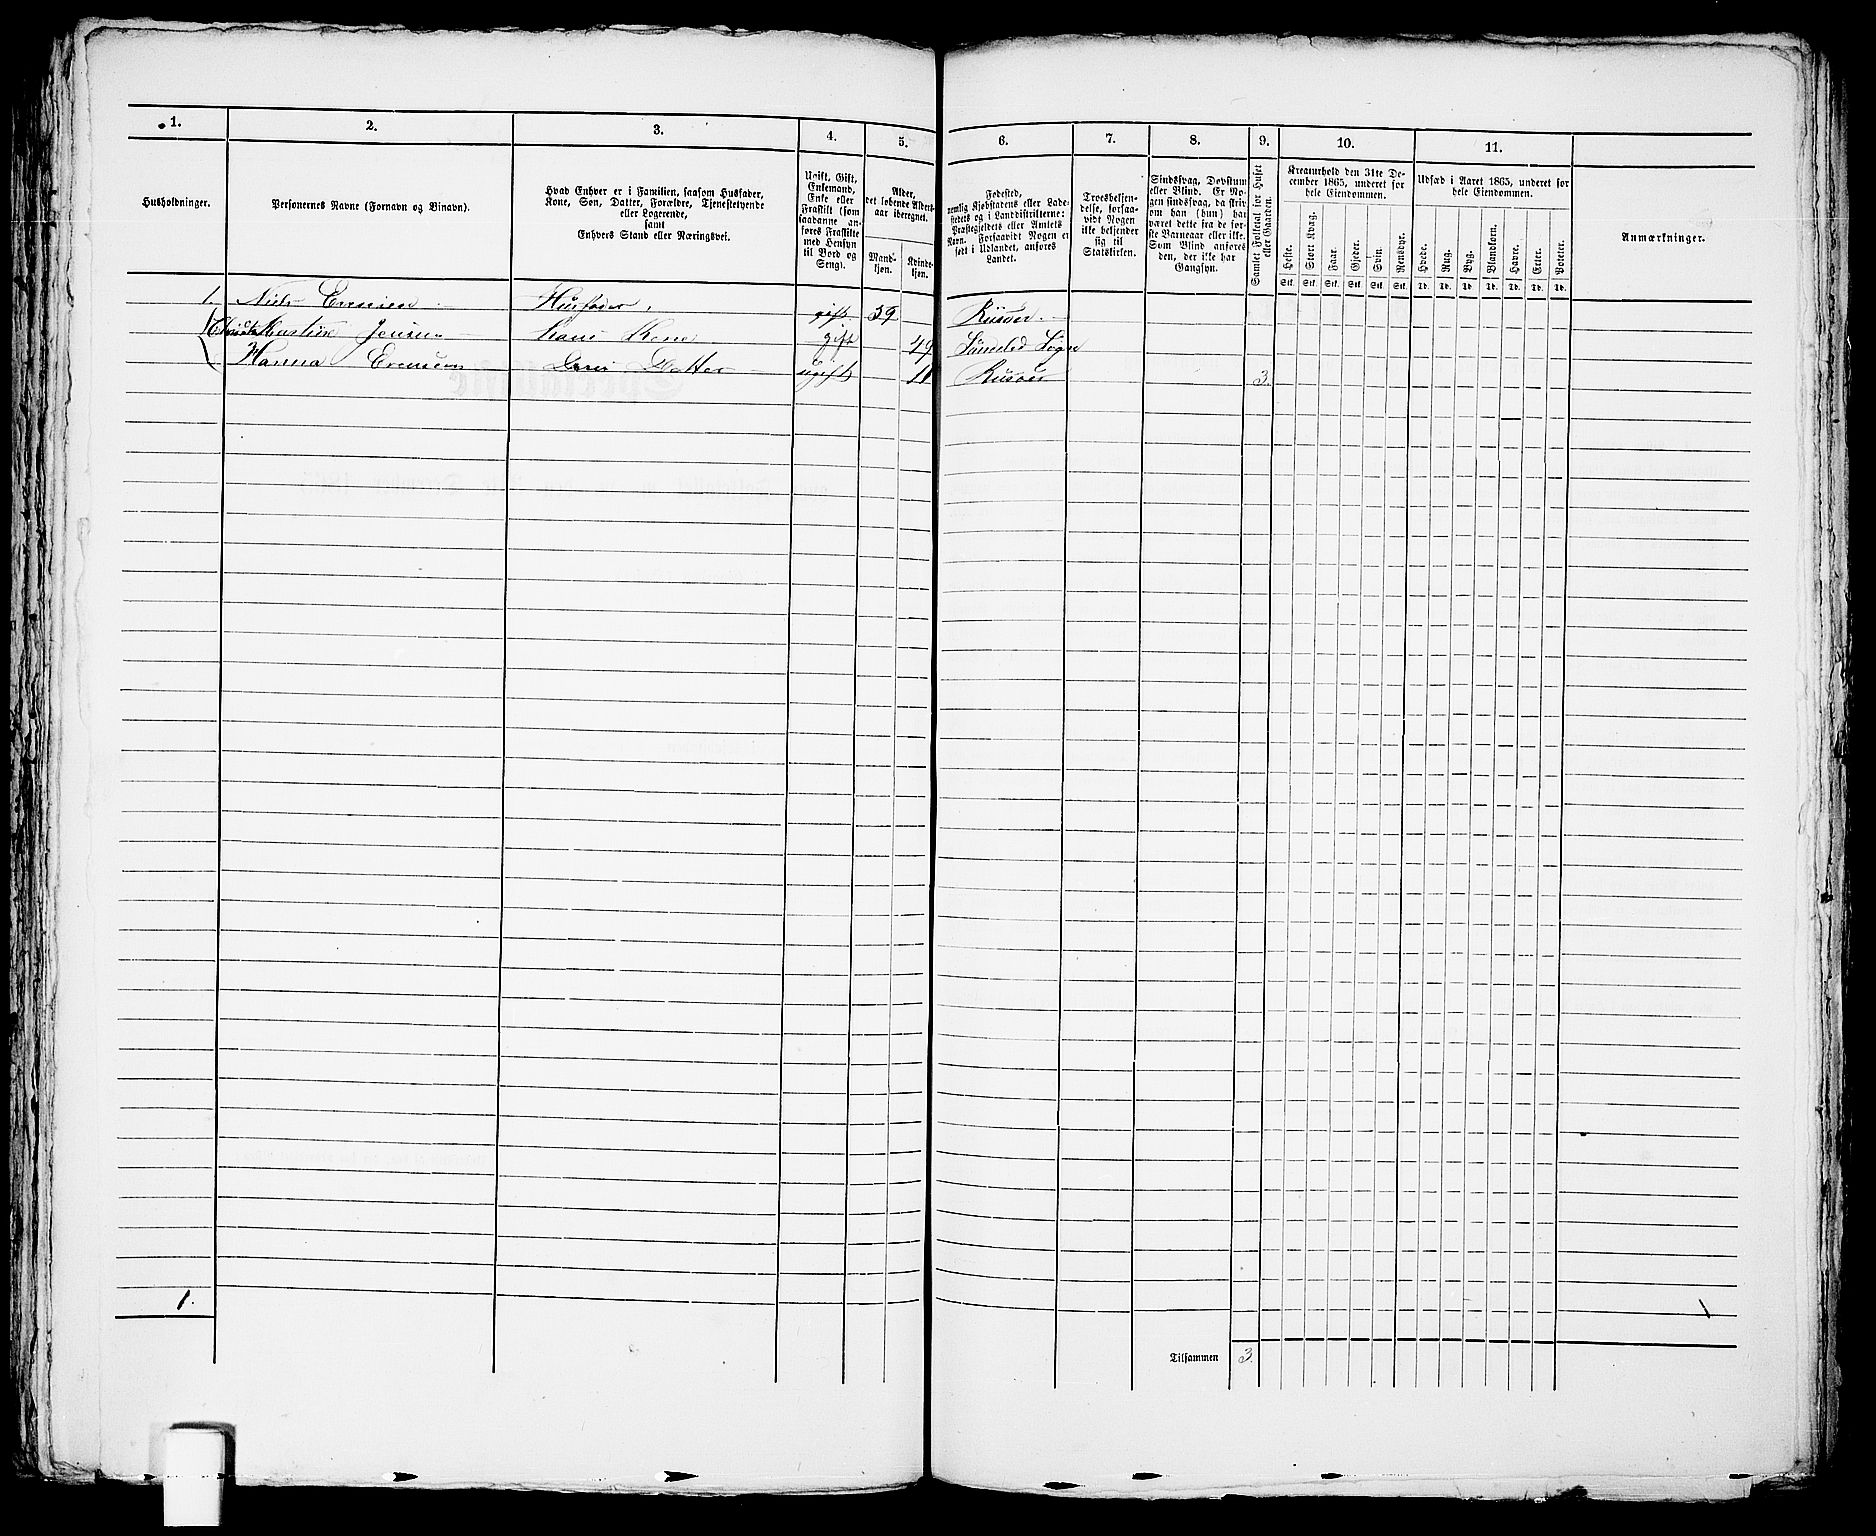 1. 2. 3. 4. 5. 6. 7. 8. 9. 10. 11.
Husholdninger.
Personernes Navne (Fornavn og Vinavn).
Hvad Enhver er i Familien, saasom Husfader,
Kone, Søn, Datter, Forældre, Tjenestetyende
eller Logerende,
samt
Enhvers Stand eller Næringsvei.
Ugift, Gift,
Enkemand,
Enke eller
Fraskilt (som
saadanne an-
føres Fraskilte
med Hensyn
til Bord og
Seng).
Alder,
det løbende Alders-
aar iberegnet.
Mand-
kjøn.
Kvinde-
kjøn.
Fødested,
nemlig Kjøbstadens eller Lade-
stedets og i Landdistrikterne:
Præstegjeldets eller Amtets
Navn. Forsaavidt Nogen er
født i Udlandet, anføres
Landet.
Troesbekjen-
delse, forsaa-
vidt Nogen
ikke bekjender
sig til
Statskirken.
Sindssvag, Døvstum
eller Blind. Er No-
gen sindssvag, da skriv
om han (hun) har
været dette fra de før-
ste Barneaar eller ikke.
Som Blind anføres
den, der ikke har
Gangsyn.
Samlet Folketal for Huset
eller Gaarden.
Kreaturhold den 31te De-
cember 1865, underet for
hele Eiendommen.
Heste. Stort Kvæg. Faar. Gjeder. Svin. Rensdyr.
Stk. Stk. Stk. Stk. Stk. Stk.
Udsæd i Aaret 1865, underet for
hele Eiendommen.
Hvede. Rug. Byg. Blandkorn. Havre. Erter. Poteter.
Td. Td. Td. Td. Td. Td. Td.
Anmærkninger.
1. Niels Evensen Husfader, gift. 59 Riisøer.
Jensen Hans Kone gift 49 Søndeled Sogn
Hanna Evensen Datter ugift 11 Riisøer 3.
1. 1
Tilsammen 3.